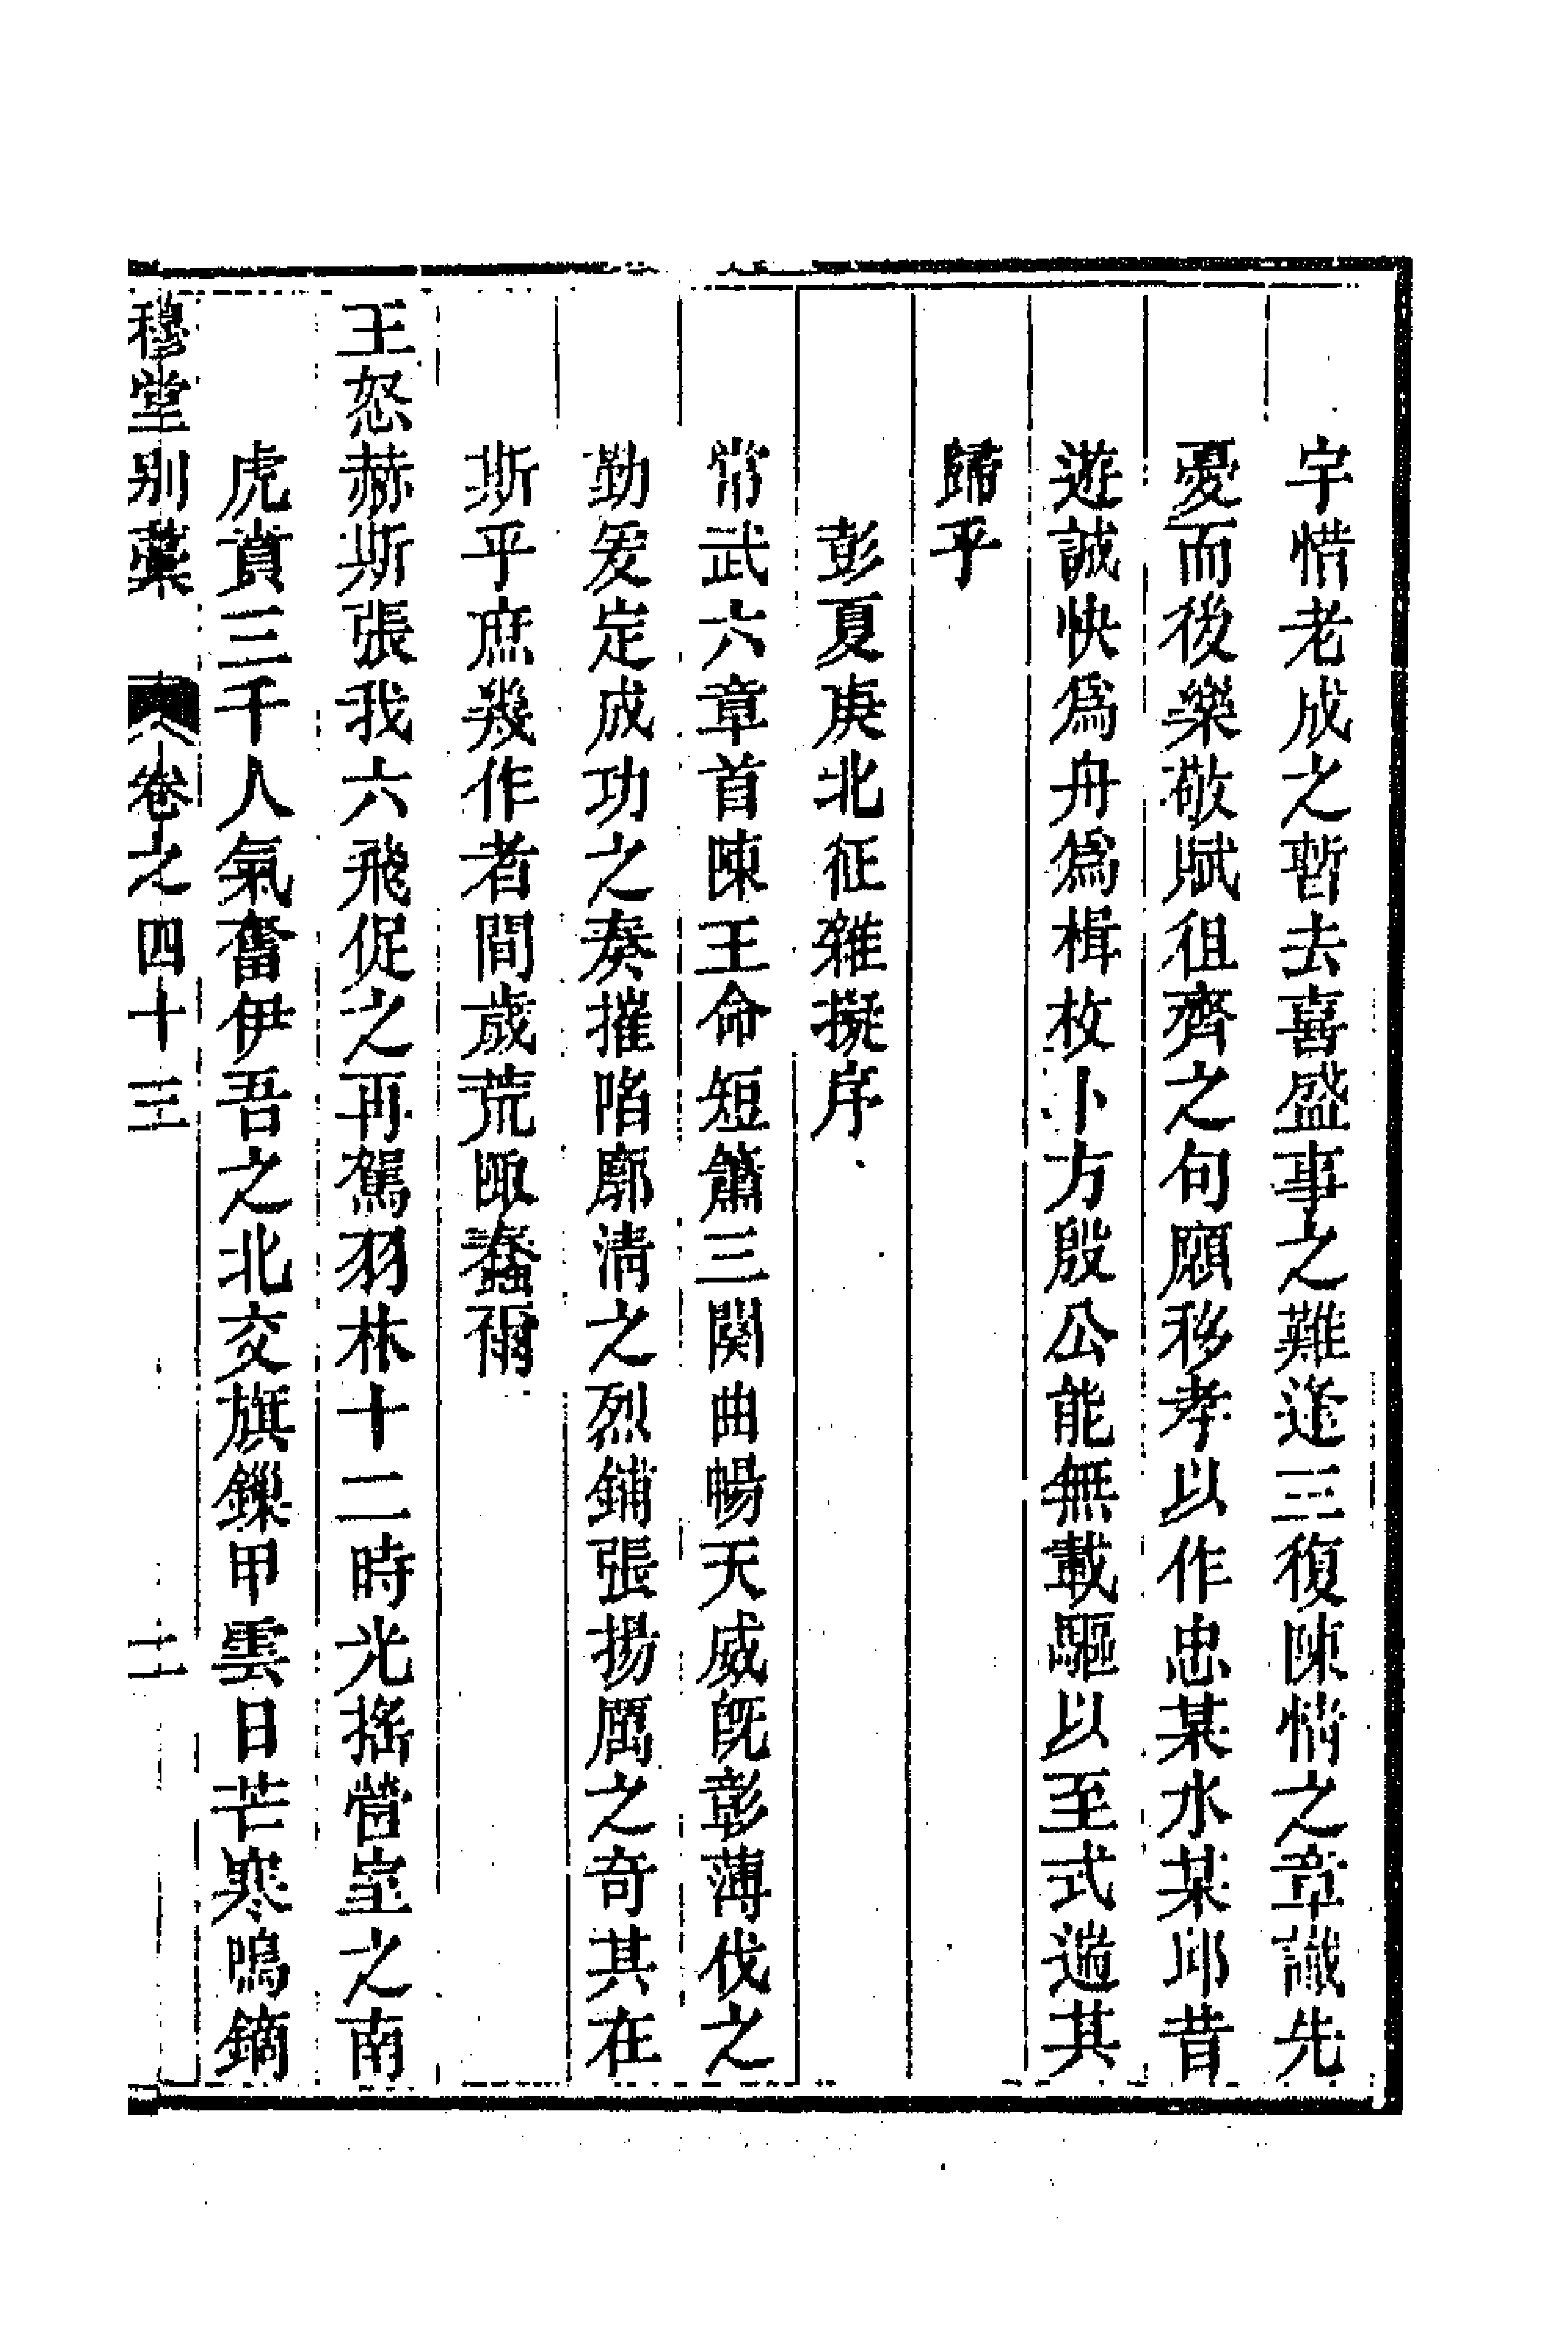 宇惜老成之暫去喜盛事之難逢三復陳情之章識先
憂而後樂敬賦徂齊之句願移孝以作忠某水某邱昔
遊誠快為舟為楫枚卜方殷公能無載驅以至式遄其
歸乎
彭夏庚北征雜擬序
常武六章首陳王命短簫三闋曲暢天威既彰薄伐之
勤爰定成功之奏摧陷廓清之烈鋪張揚厲之奇其在
斯乎庶幾作者間歲荒陬蠢爾
王怒赫斯張我六飛促之再駕羽林十二時光搖營室之南
虎賁三千人氣奮伊吾之北交旗鏁甲雲日芒寒鳴鏑
穆堂别藁 卷之四十三 二